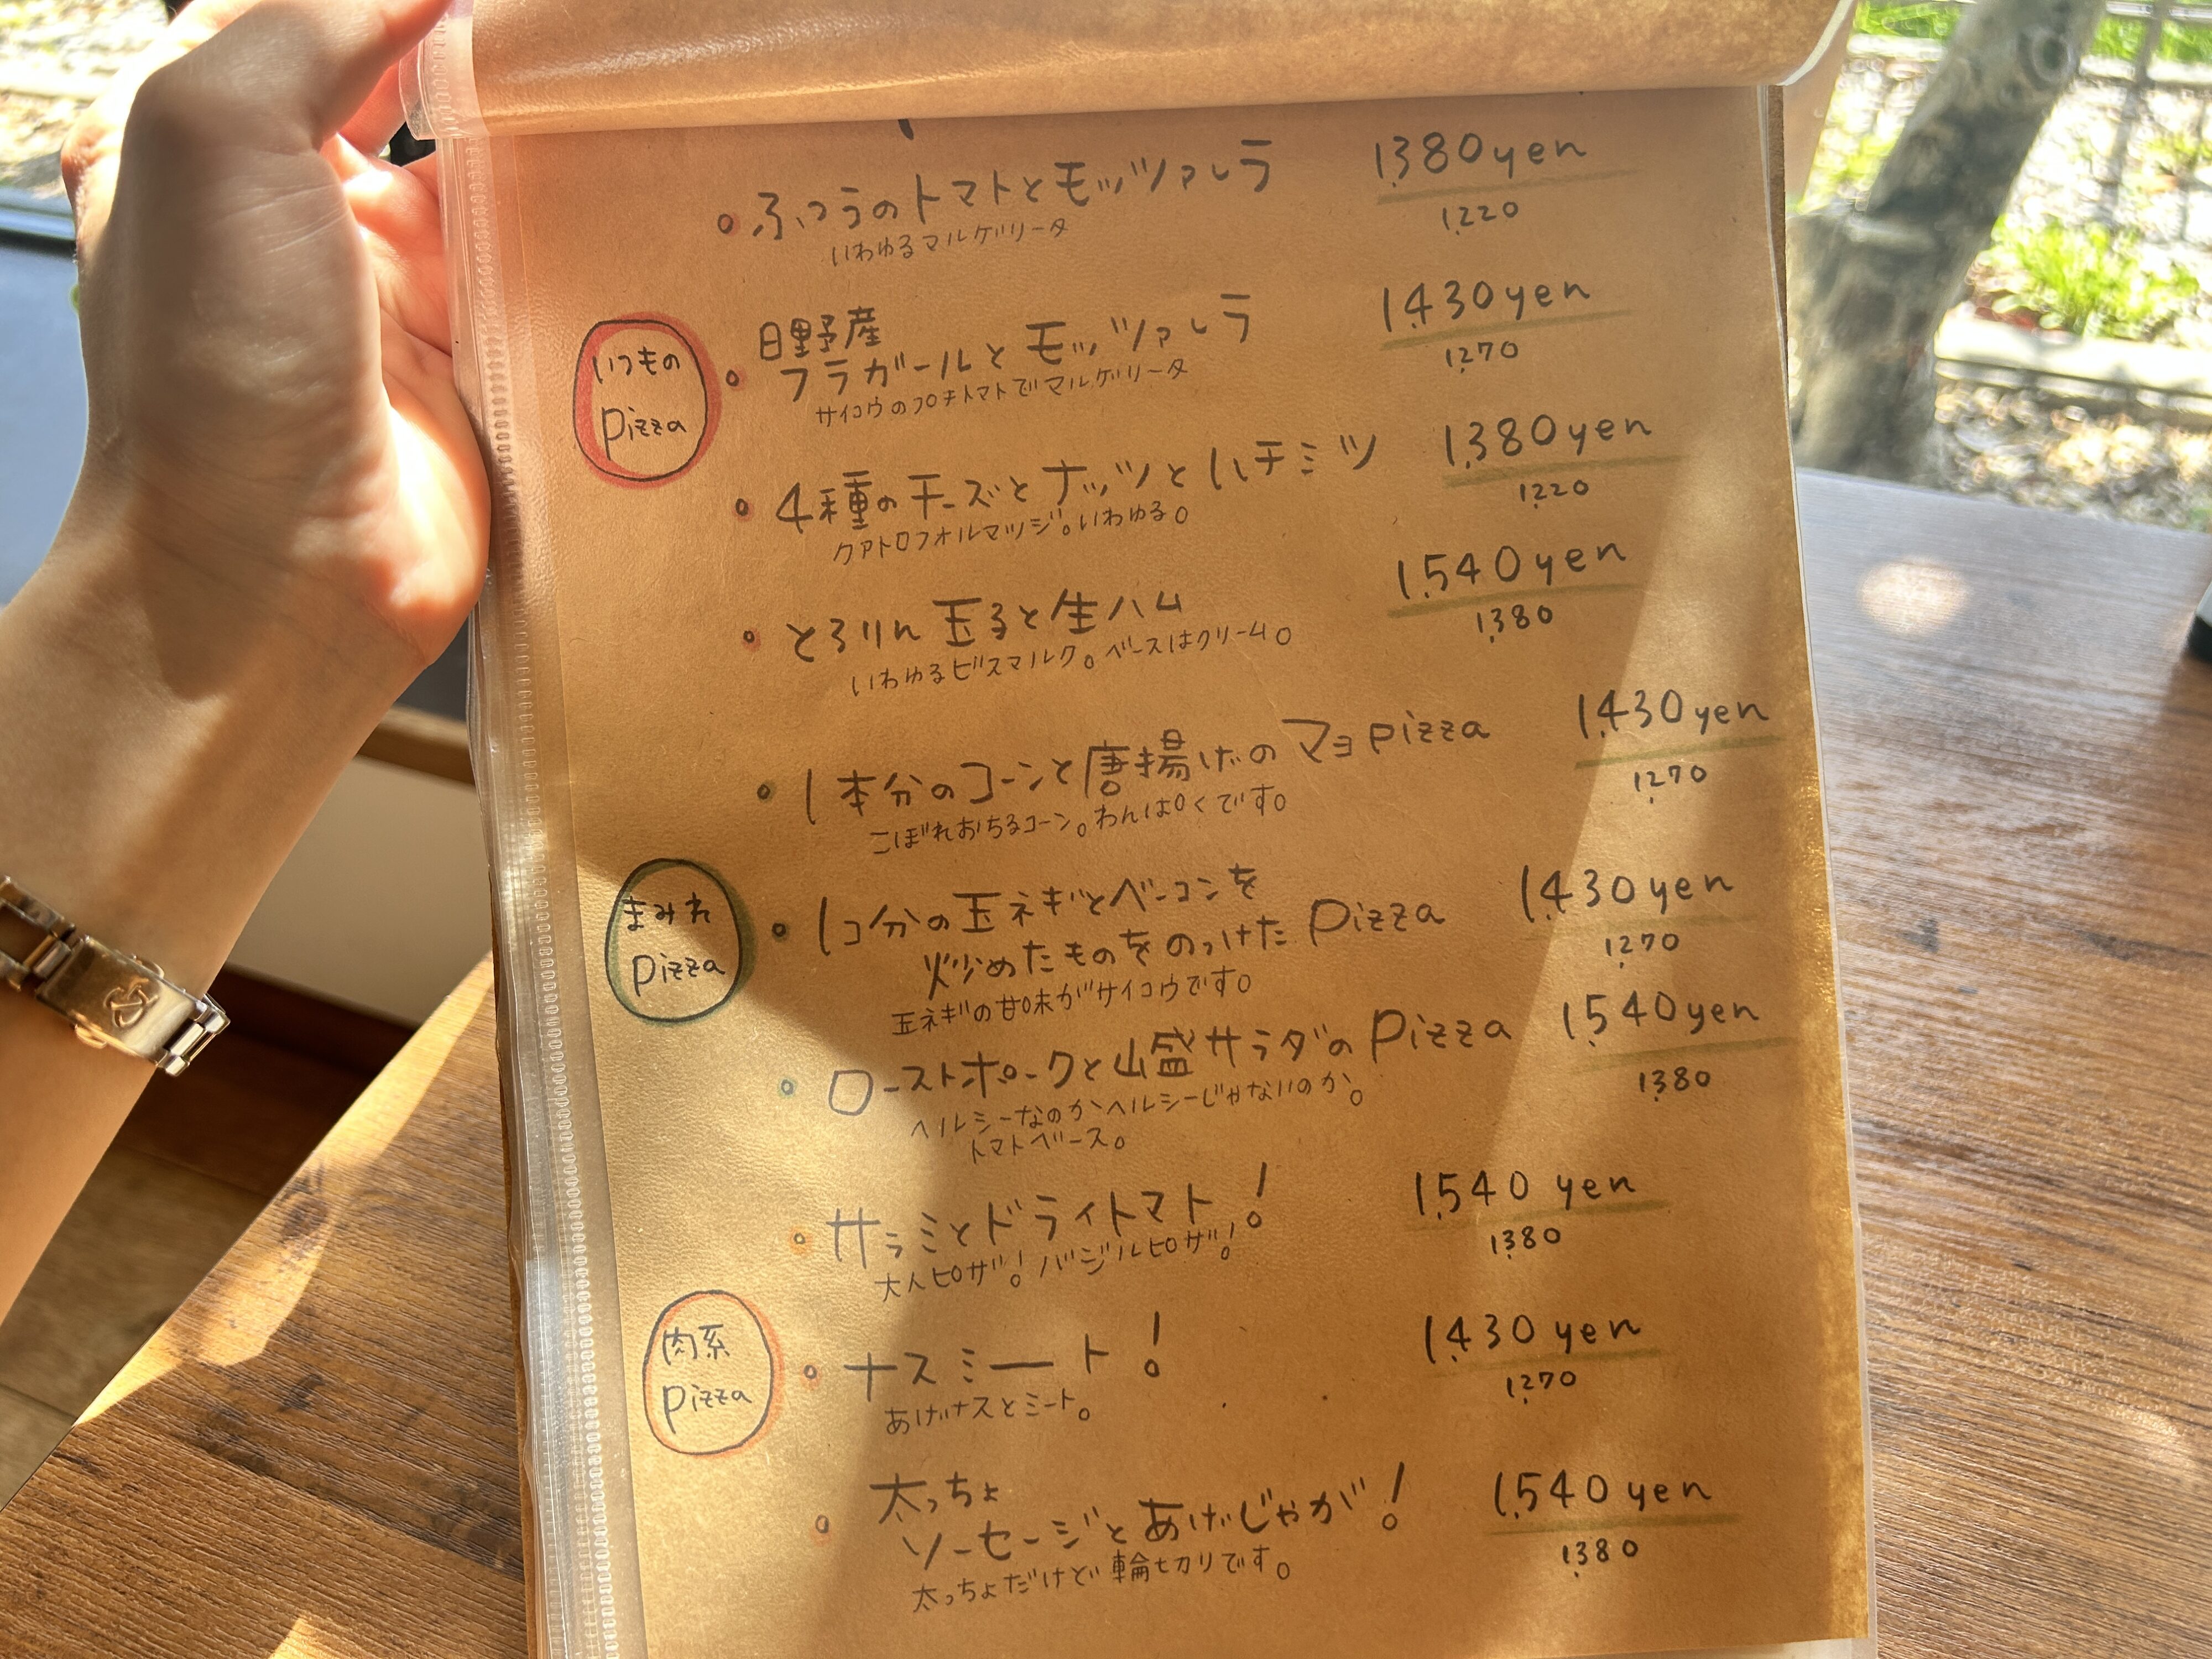 ふつうのトマトとモッツァレラ 1,380yen
いわゆるマルゲリータ 1,220
いつもの
pizza
日野産
フラガールとモッツァレラ 1,430yen
サイコウのプチトマトでマルゲリータ 1,270
4種のチーズとナッツとハチミツ 1,380yen
クアトロフォルマッジ。いわゆる。 1,220
とろりん玉子と生ハム 1,540yen
いわゆるビスマルク。ベースはクリーム。 1,380
1本分のコーンと唐揚げのマヨpizza 1,430yen
こぼれおちるコーン。わんぱくです。 1,270
まみれ
pizza
1コ分の玉ネギとベーコンを
炒めたものをのっけたpizza 1,430yen
玉ネギの甘味がサイコウです。 1,270
ローストポークと山盛サラダのpizza 1,540yen
ヘルシーなのかヘルシーじゃないのか。 1,380
トマトベース。
サラミとドライトマト! 1,540 yen
大人ピザ!バジルピザ! 1,380
肉系
pizza
ナスミート! 1,430 yen
あげナスとミート。 1,270
太っちょ
ソーセージとあげじゃが! 1,540 yen
太っちょだけど輪切りです。 1,380